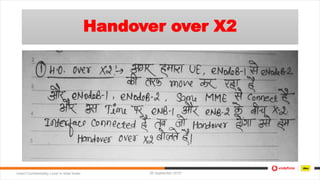 Handover over X2
① H.O. over X2 :→ अगर हमारा UE, eNodeB-1 से eNodeB-2
की तरफ move कर रहा है
और eNodeB-1, eNodeB-2, Same MME से Connect है
और उस Time पर eNB-1 और eNB-2 के बीच X2
Interface Connected है तब जो Handover होगा उसे हम
Handover over X2 बोलते है।
Insert Confidentiality Level in slide footer
20 September 2019
vodafone
idea